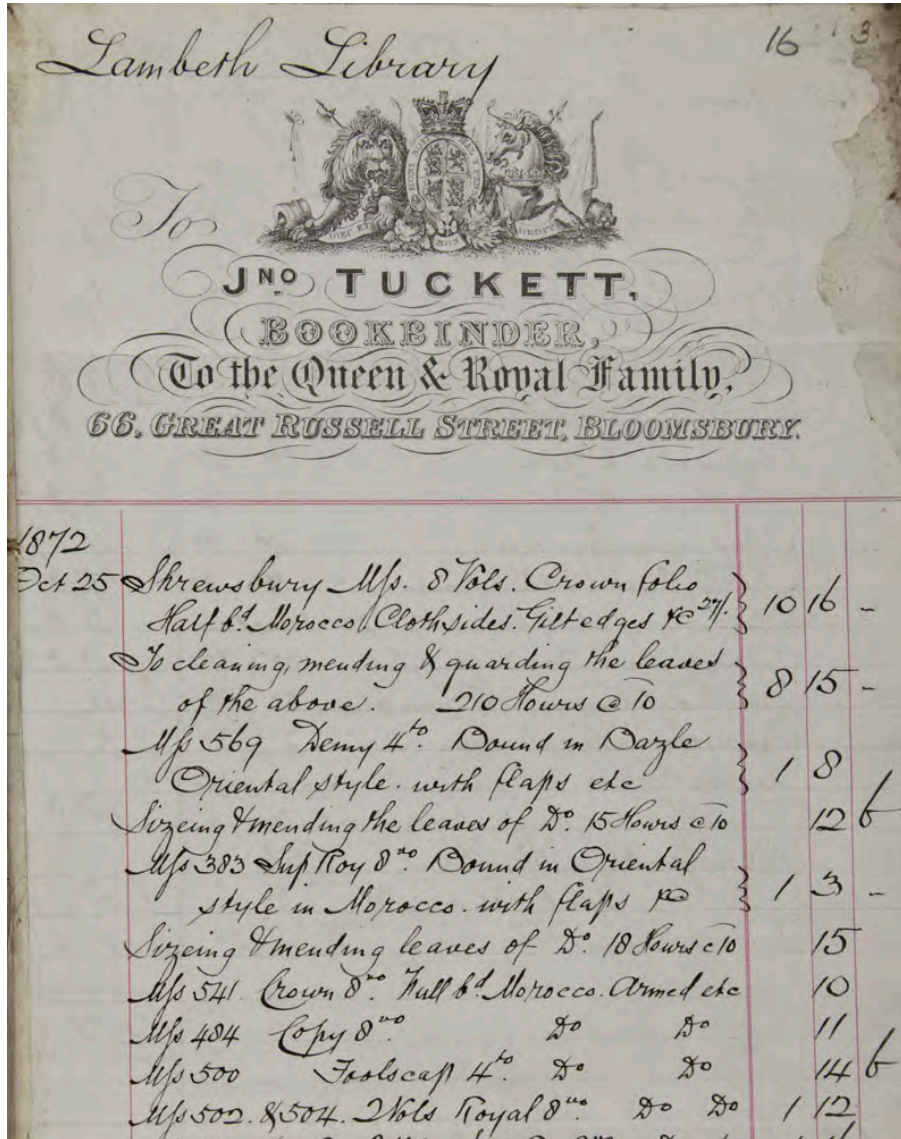 Lambeth Library
16 3.
To
HONI SOIT
DIEU ET MON DROIT
JNO TUCKETT,
BOOKBINDER,
To the Queen & Royal Family,
66, GREAT RUSSELL STREET, BLOOMSBURY.
1872
Oct 25 Shrewsbury Mss. 8 Vols. Crown folio
Half bd Morocco Cloth sides. Gilt edges &c 27/. 10 16 -
To cleaning, mending & guarding the leaves
of the above. 210 Hours @ 10 8 15 -
Mss 569 Demy 4to. Bound in Bazle
Oriental style. with flaps etc 1 8
Sizeing & mending the leaves of Do. 15 Hours @ 10 12 6
Mss 383 Sup Roy 8vo. Bound in Oriental
style in Morocco. with flaps &c 1 3 -
Sizeing & mending leaves of Do. 18 Hours @ 10 15
Mss 541. Crown 8vo. Full bd Morocco. Armed etc 10
Mss 484 Copy 8vo Do Do 11
Mss 500 Foolscap 4to. Do Do 14 6
Mss 502. & 504. 2 Vols Royal 8vo Do Do 1 12